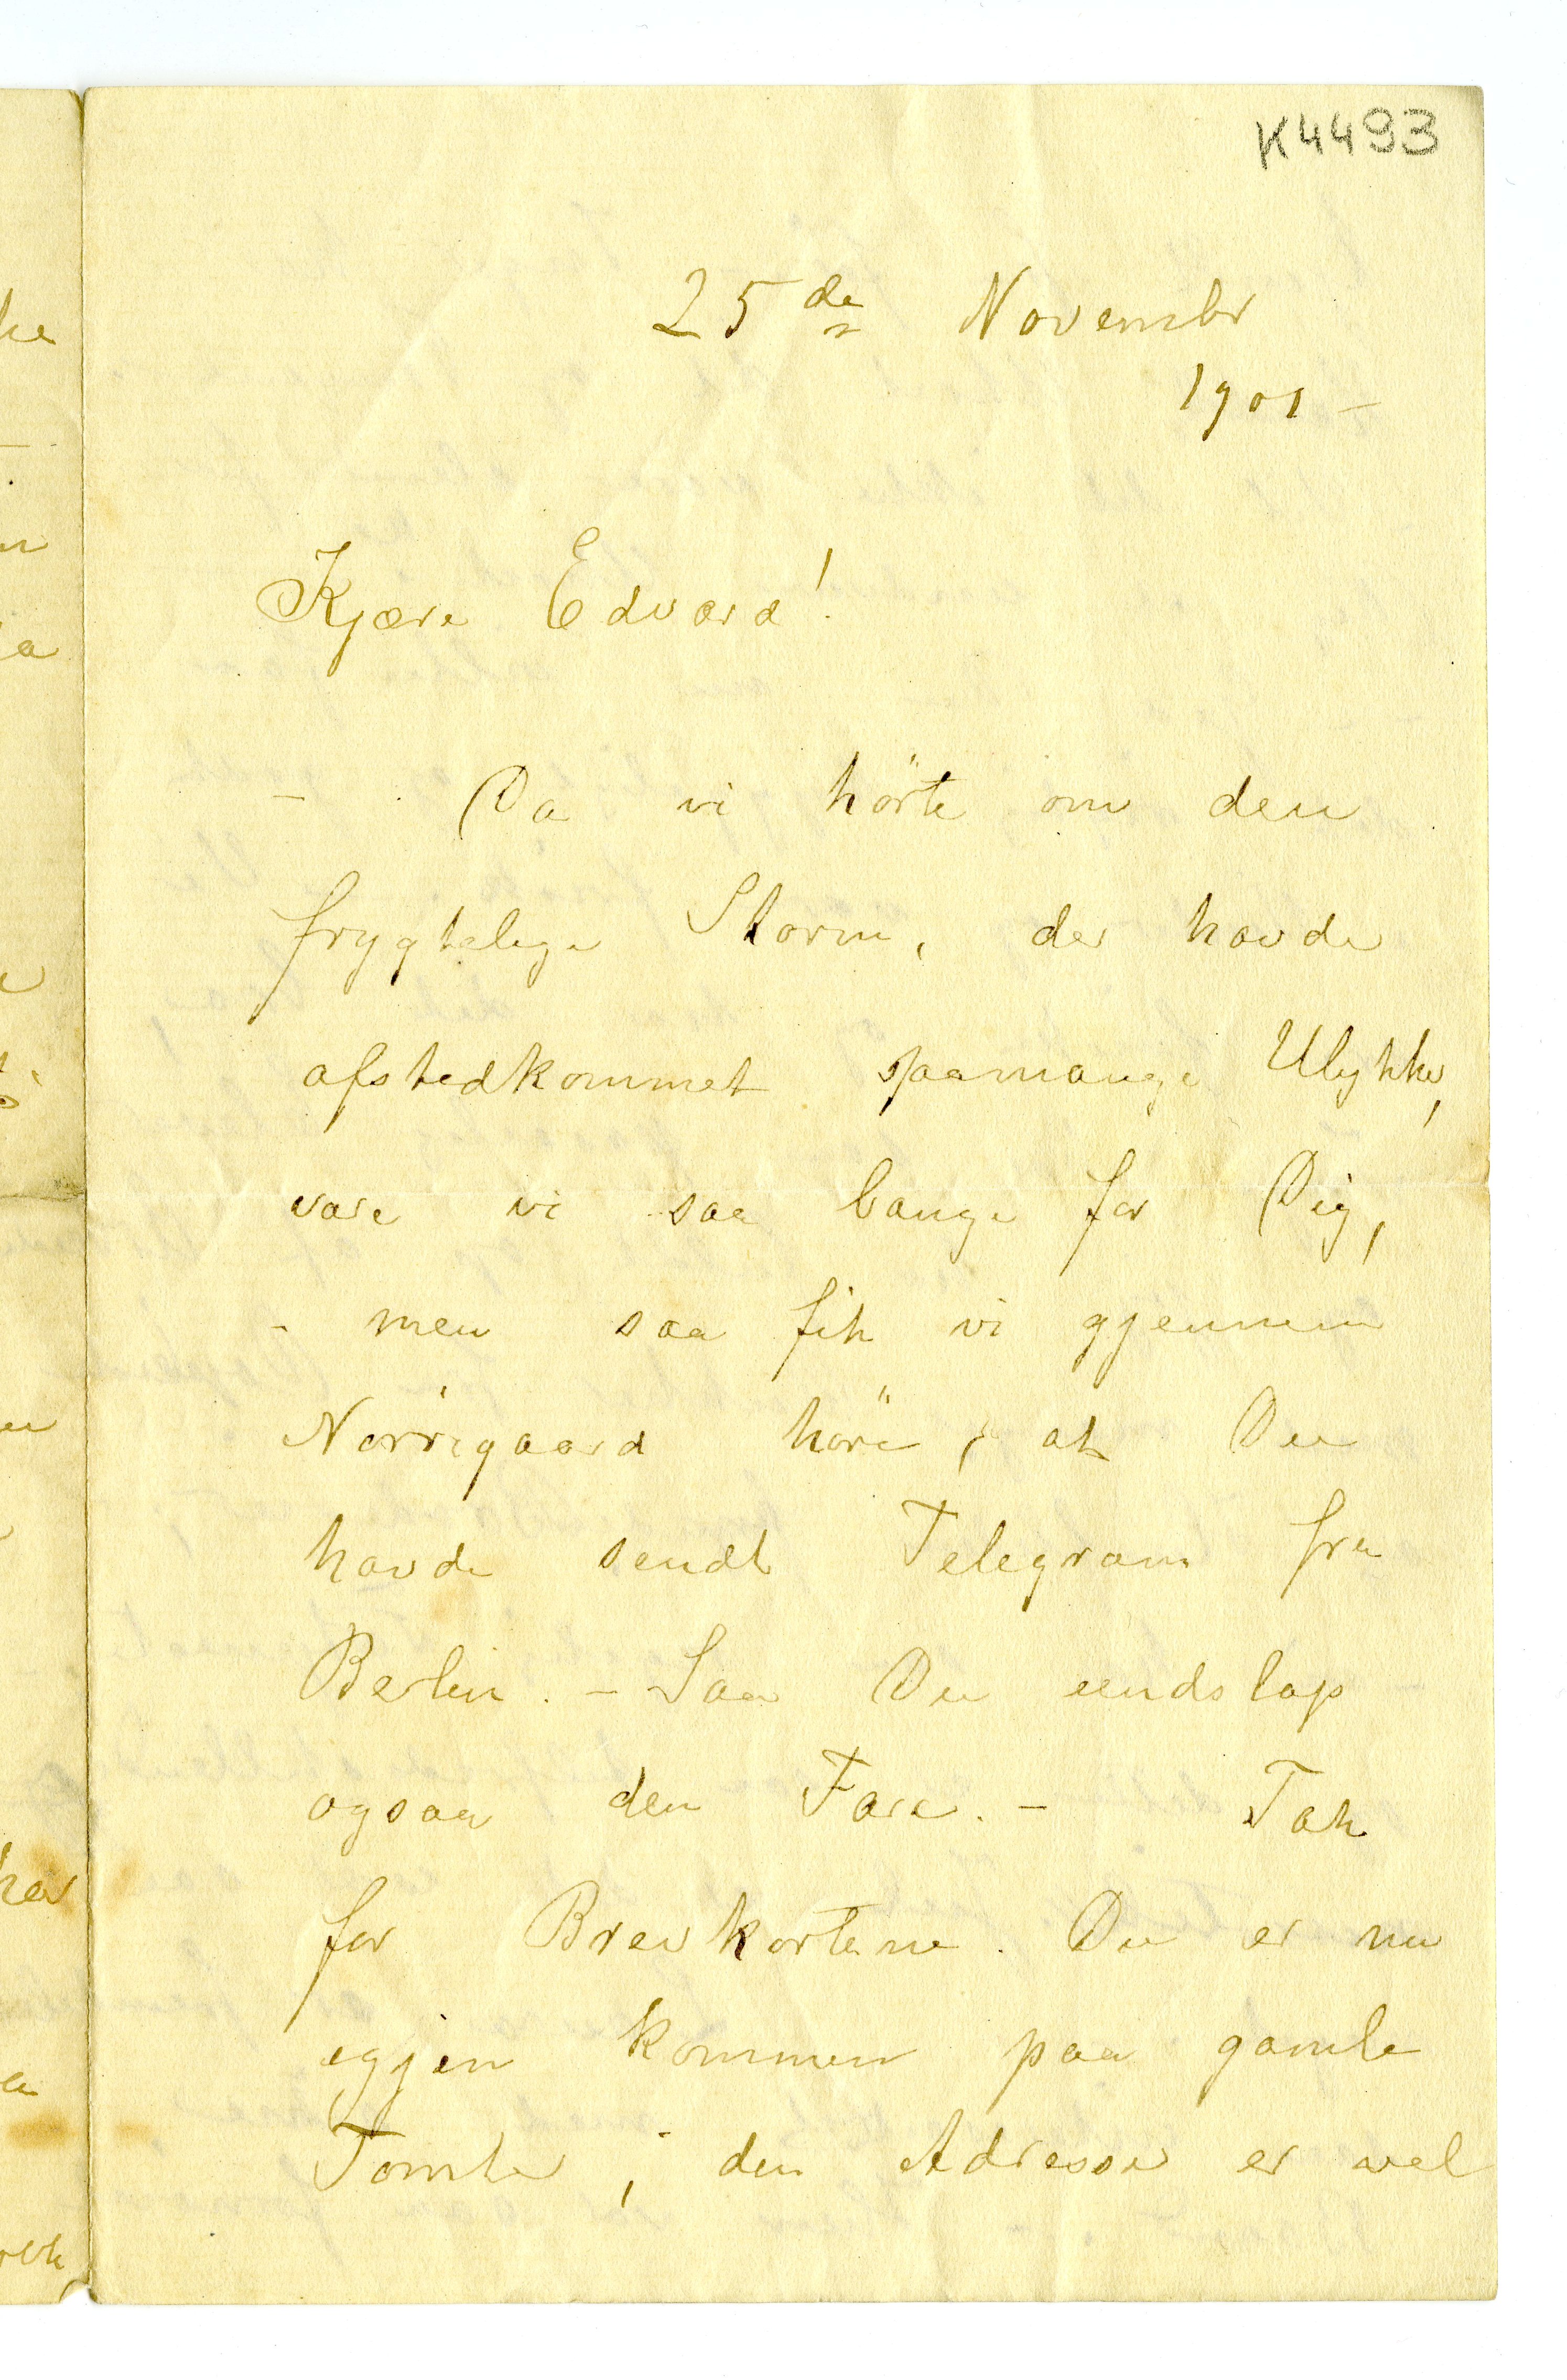 K4493
25de Novembr
1901 –
Kjære Edvard!
– Da vi hörte om den
frygtelige Storm, der havde
afstedkommet saamange Ulykker,
vare vi saa bange for Dig,
– men saa fik vi gjennem
Nörregaard höre, at Du
havde sendt Telegram fra
Berlin. – Saa Du undslap
ogsaa den Fare. – Tak
for Brevkortene. Du er nu
igjen kommen paa gamle
Tomter, den Adresse er vel